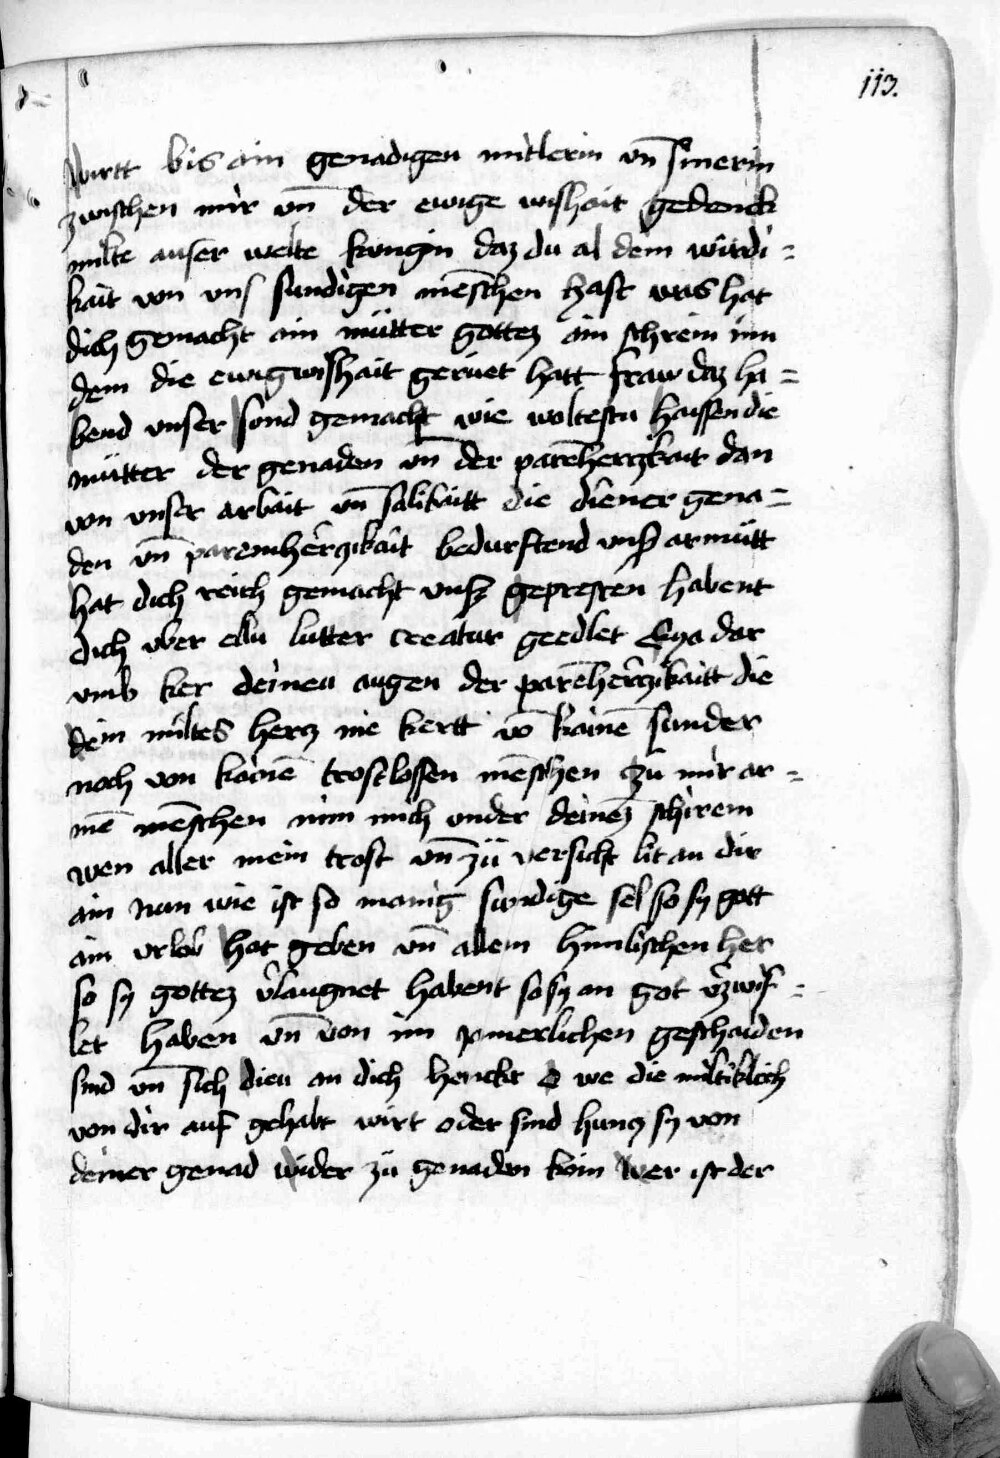 113.
wirtt bis ain genadigen mitlerin vn̄ sinerin
zwischen mir vn̄ der ewige wishait gedenck
milte auser welte kungin daz du al dem wirdi=
kait von vns sundigen mēschen hast was hat
dich gemacht ain mütter gottez ain schrein inn
dem die ewig wishait geruet hatt fraw daz ha=
bend unser sond gemacht wie woltestu haissen die
mütter der genaden vn̄ der parēherczikait dan
von unser arbait vn̄ salikaitt die diener gena=
den vn̄ paremherczikait bedurftend vnß armütt
hat dich reich gemacht vnß gepresten habent
dich vber ellu lutter creatur geedlet Eya dar
vmb ker deineu augen der parēherczikaitt die
dein miltes hercz nie kertt vō kainē sunder
noch von kainē trostlossen mēschen zu mir ar=
mē mēschen nim mich under deinez schirem
wen aller mein trost vn̄ zü versicht lit an dir
ain Nun wie ist so manig sundige sel so sy gott
ain vrlob hat geben vn̄ allem himlischen her
so sy gottez v̄laugnet habent so sy an got v̄zwif=
let haben vn̄ von im jamerlichen geschaiden
sind vn̄ sich dieu an dich henckt O we die miltiklich
von dir auf gehabt wirt oder sind huncz sy von
deiner genad wider zü genaden koin Wer ist der